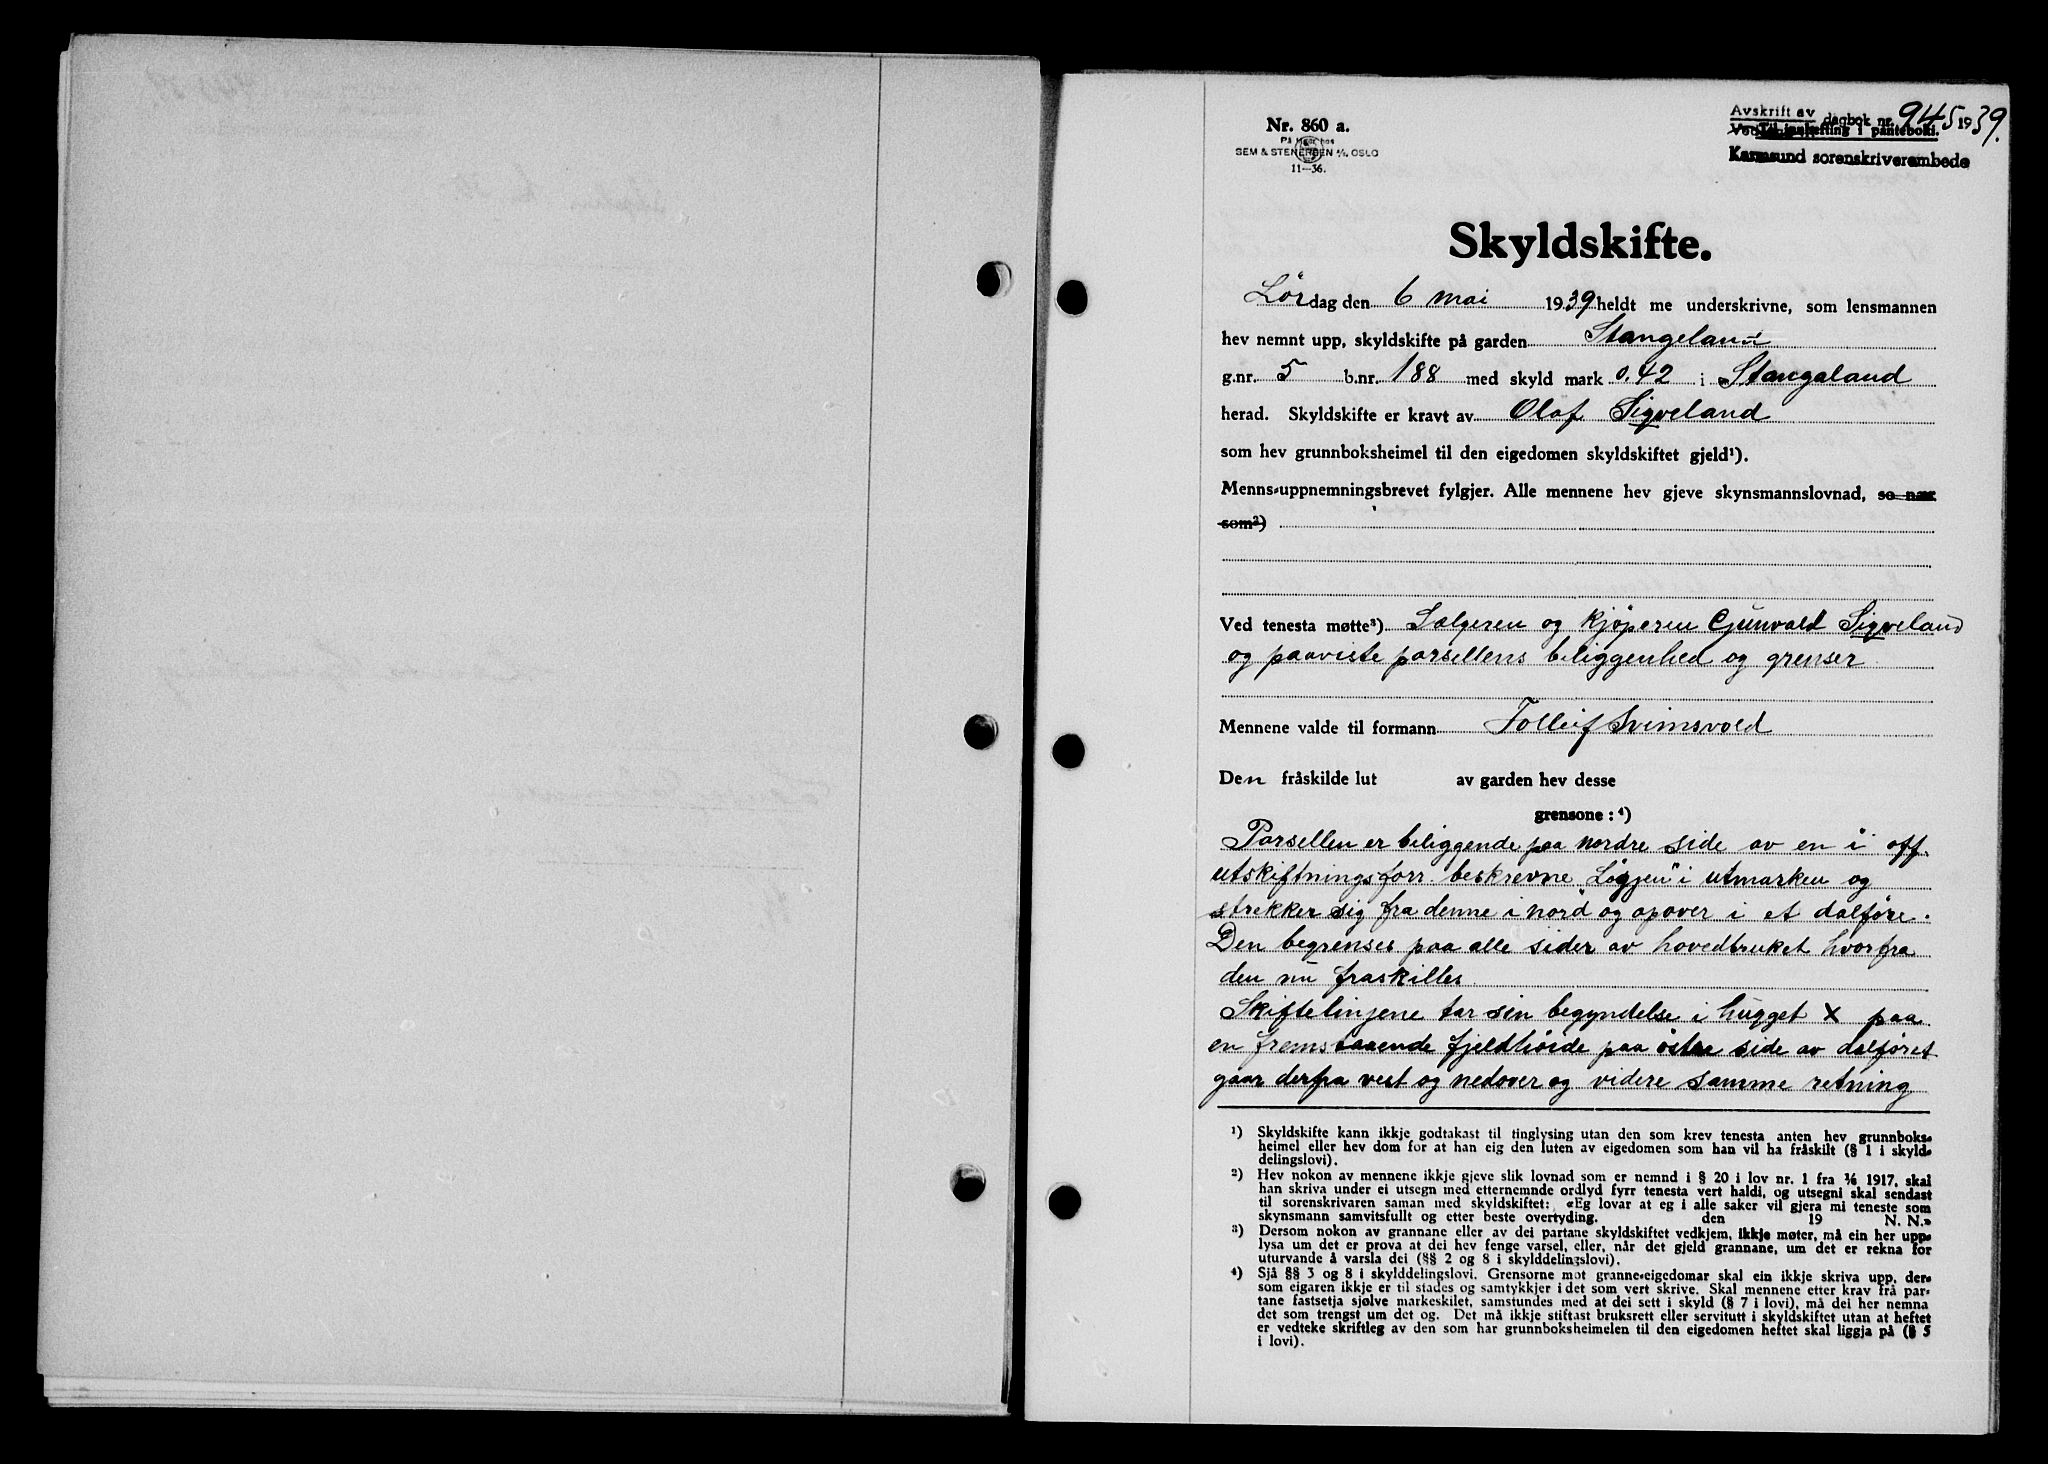 Avskrift av dagbok nr. 945 1939.
Til innhefting i panteboki.
Karmsund sorenskriverembede
Nr. 860 a.
SEM & STENERSEN A/S, OSLO
11—36.
Skyldskifte.
Lördag den 6 mai 1939 heldt me underskrivne, som lensmannen
hev nemnt upp, skyldskifte på garden Stangeland
g.nr. 5 b.nr. 188 med skyld mark 0.42 i Stangaland
herad. Skyldskifte er kravt av Olaf Sigveland
som hev grunnboksheimel til den eigedomen skyldskiftet gjeld¹).
Menns-uppnemningsbrevet fylgjer. Alle mennene hev gjeve skynsmannslovnad, so nær
som²)
Ved tenesta møtte³) Sælgeren og kjøperen Gunvald Sigveland
og paaviste parsellens beliggenhed og grenser
Mennene valde til formann Tolleif Svimsvold
Den fråskilde lut av garden hev desse
grensone: ⁴)
Parsellen er beliggende paa nordre side av en i off.
utskiftningsforr. beskrevne "Löyjen" i utmarken og
strekker sig fra denne i nord og opover i et dalføre.
Den begrenses paa alle sider av hovedbruket hvorfra
den nu fraskilles.
Skiftelinjene tar sin begyndelse i hugget X paa
en fremstaaende fjeldhöide paa östre side av dalføret
gaar derfra vest og nedover og videre samme retning
¹) Skyldskifte kann ikkje godtakast til tinglysing utan den som krev tenesta anten hev grunnboks-
heimel eller hev dom for at han eig den luten av eigedomen som han vil ha fråskilt (§ 1 i skyld-
delingslovi).
²) Hev nokon av mennene ikkje gjeve slik lovnad som er nemnd i § 20 i lov nr. 1 fra 1/6 1917, skal
han skriva under ei utsegn med etternemnde ordlyd fyrr tenesta vert haldi, og utsegni skal sendast
til sorenskrivaren saman med skyldskiftet: «Eg lovar at eg i alle saker vil gjera mi teneste som
skynsmann samvitsfullt og etter beste overtyding. den 19 N. N.»
³) Dersom nokon av grannane eller av dei partane skyldskiftet vedkjem, ikkje møter, må ein her upp-
lysa um det er prova at dei hev fenge varsel, eller, når det gjeld grannane, um det er rekna for
uturvande å varsla dei (§§ 2 og 8 i skylddelingslovi).
⁴) Sjå §§ 3 og 8 i skylddelingslovi. Grensorne mot granne-eigedomar skal ein ikkje skriva upp, der-
som eigaren ikkje er til stades og samtykkjer i det som vert skrive. Skal mennene etter krav frå par-
tane fastsetja sjølve markeskilet, samstundes med at dei sett i skyld (§ 7 i lovi), må dei her nemna
det som trengst um det og. Det må ikkje stiftast bruksrett eller servitutt i skyldskiftet utan at heftet
er vedteke skriftleg av den som har grunnboksheimelen til den eigedomen heftet skal liggja på (§ 5
i lovi).